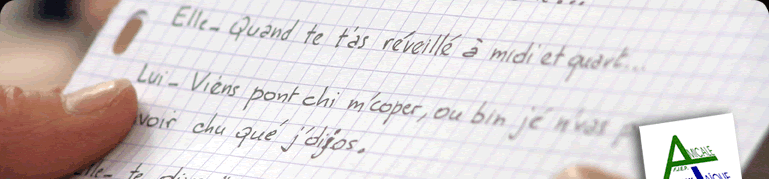 Elle - Quand te t'as réveillé à midi et quart...
Lui - Viens pont chi m'coper, ou bin jé n'vas
voir chu qué j'digos.
te
AMICALE